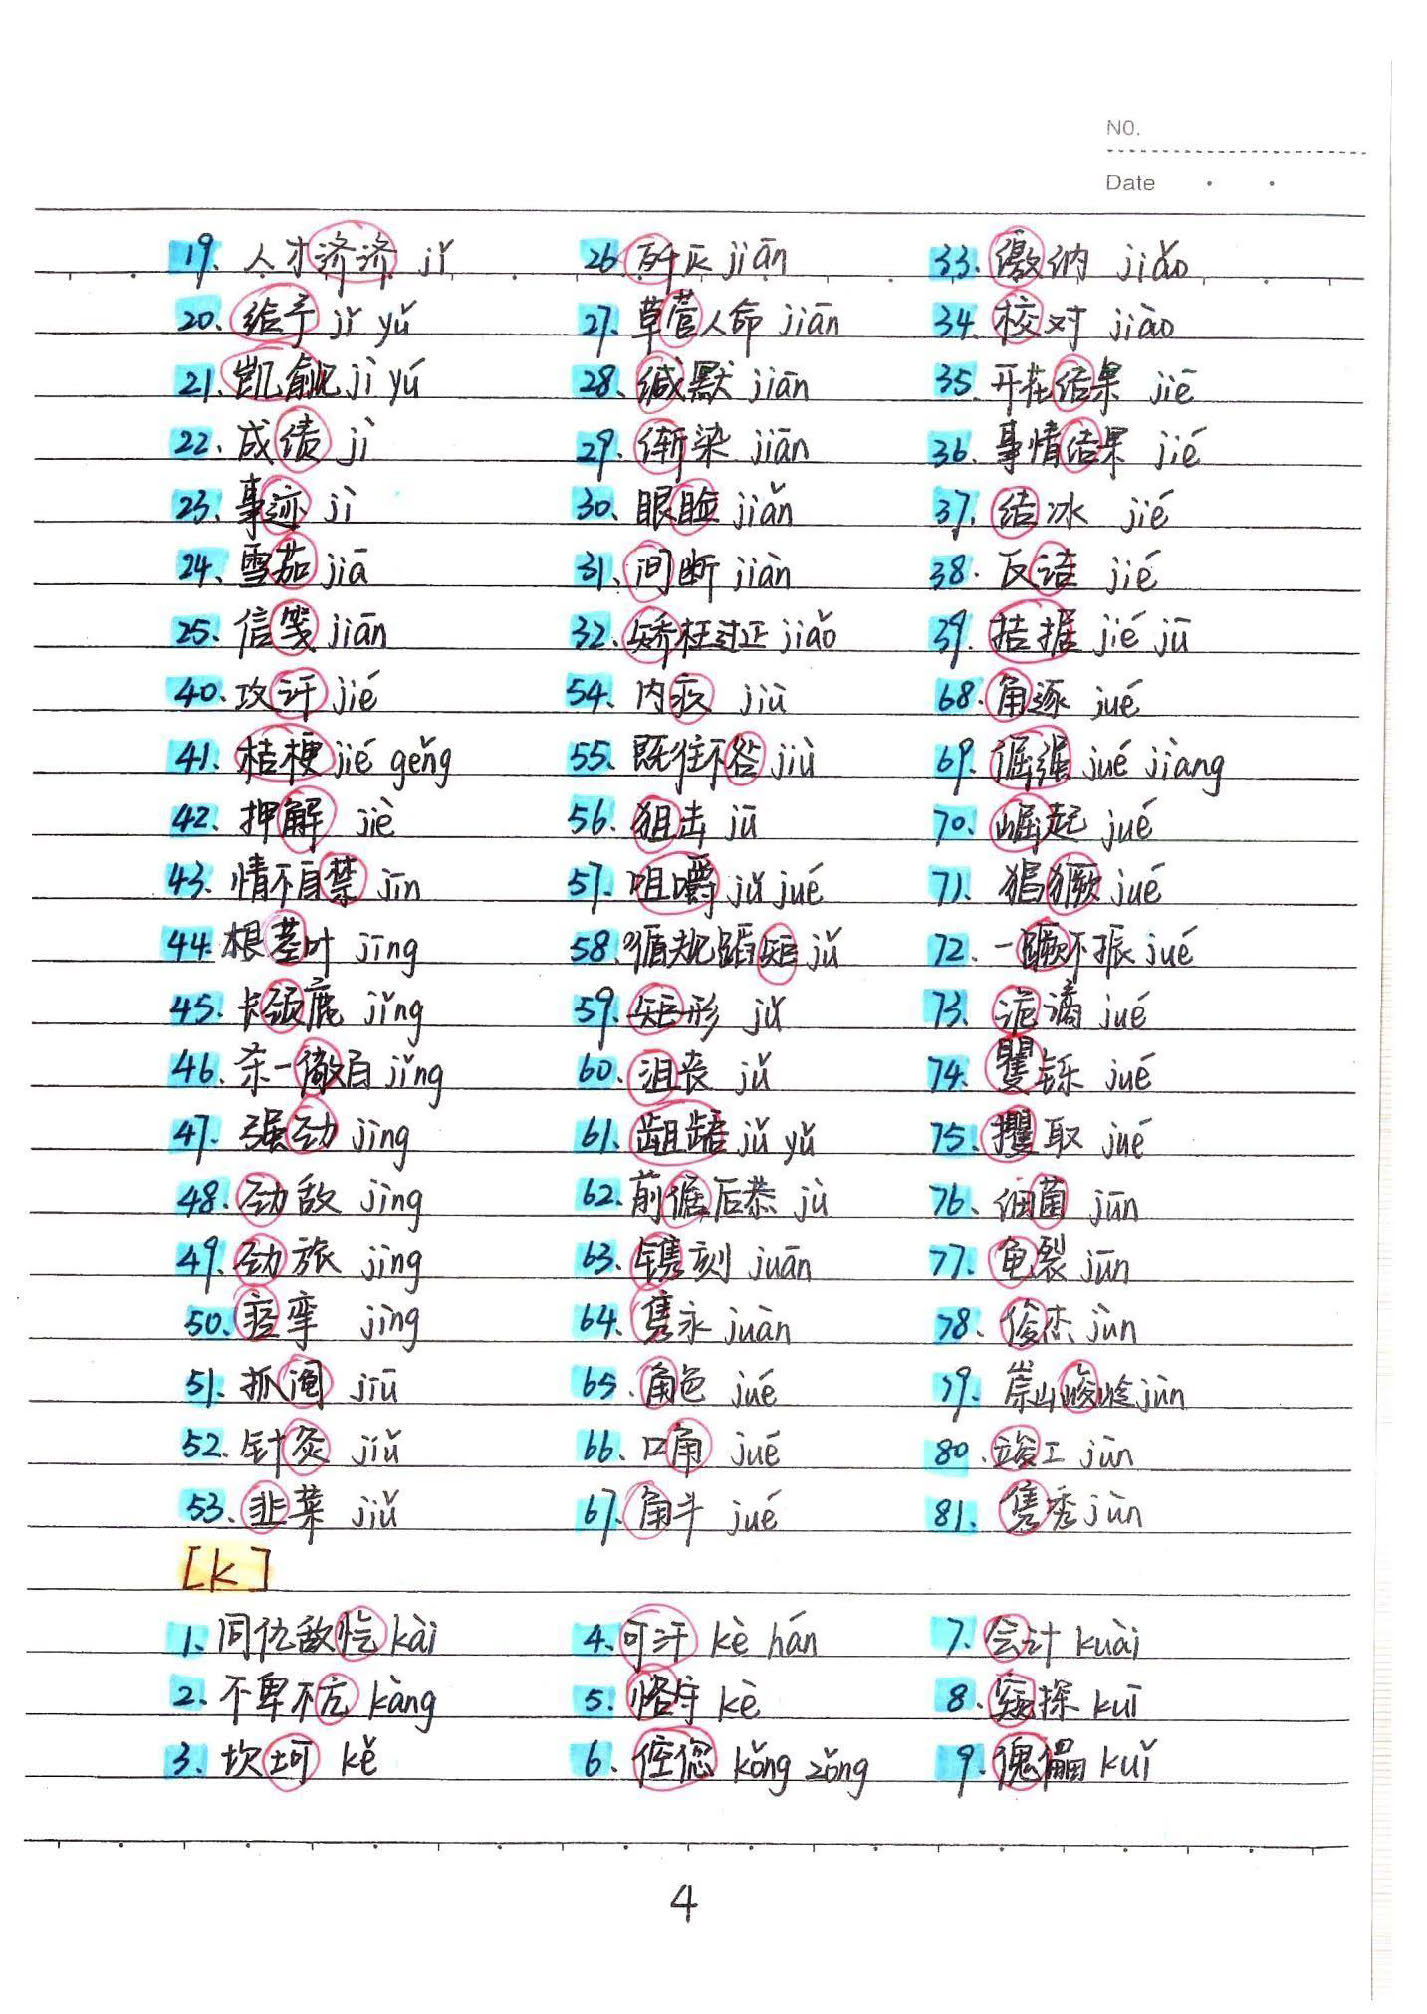 NO.
Date
19. 人才济济 jǐ 26 歼灭 jiān 33. 缴纳 jiǎo
20. 给予 jǐ yǔ 27. 草菅人命 jiān 34. 校对 jiào
21. 觊觎 jì yú 28. 缄默 jiān 35. 开花结果 jiē
22. 成绩 jì 29. 渐染 jiān 36. 事情结果 jié
23. 事迹 jì 30. 眼睑 jiǎn 37. 结冰 jié
24. 雪茄 jiā 31. 间断 jiàn 38. 反诘 jié
25. 信笺 jiān 32. 矫枉过正 jiǎo 39. 拮据 jié jū
40. 攻讦 jié 54. 内疚 jiù 68. 角逐 jué
41. 桔梗 jié gěng 55. 既往不咎 jiù 69. 倔强 jué jiàng
42. 押解 jiè 56. 狙击 jū 70. 崛起 jué
43. 情不自禁 jīn 57. 咀嚼 jǔ jué 71. 猖獗 jué
44. 根茎叶 jīng 58. 循规蹈矩 jǔ 72. 一蹶不振 jué
45. 长颈鹿 jǐng 59. 矩形 jǔ 73. 诡谲 jué
46. 杀一儆百 jǐng 60. 沮丧 jǔ 74. 矍铄 jué
47. 强劲 jìng 61. 龃龉 jǔ yǔ 75. 攫取 jué
48. 劲敌 jìng 62. 前倨后恭 jù 76. 细菌 jūn
49. 劲旅 jìng 63. 镌刻 juān 77. 龟裂 jūn
50. 痉挛 jìng 64. 隽永 juàn 78. 俊杰 jùn
51. 抓阄 jiū 65. 角色 jué 79. 崇山峻岭 jùn
52. 针灸 jiǔ 66. 口角 jué 80. 竣工 jùn
53. 韭菜 jiǔ 67. 角斗 jué 81. 隽秀 jùn
[k]
1. 同仇敌忾 kài 4. 可汗 kè hán 7. 会计 kuài
2. 不卑不亢 kàng 5. 恪守 kè 8. 窥探 kuī
3. 坎坷 kě 6. 倥偬 kǒng zǒng 9. 傀儡 kuǐ
4